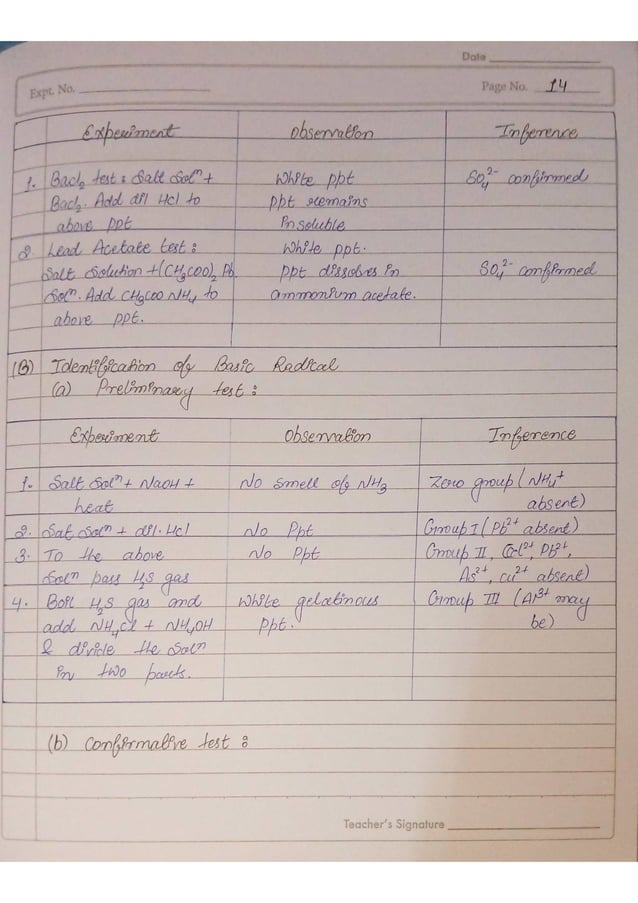 Date
Expt. No.
Page No. 14
Experiment Observation Inference
1. Bacl₂ test : Salt Solⁿ + White ppt SO₄²⁻ confirmed
Bacl₂. Add dil Hcl to ppt remains
above ppt insoluble
2. Lead Acetate test : White ppt.
Salt Solution + (CH₃COO)₂ Pb ppt dissolves in SO₄²⁻ confirmed
Solⁿ. Add CH₃COO NH₄ to ammonium acetate.
above ppt.
(B) Identification of Basic Radical
(a) Preliminary test :
Experiment Observation Inference
1. Salt Solⁿ + NaOH + No smell of NH₃ Zero group (NH₄⁺
heat absent)
2. Sat Solⁿ + dil. Hcl No Ppt Group I (Pb²⁺ absent)
3. To the above No Ppt Group II, Pb²⁺,
Solⁿ pass H₂S gas As²⁺, cu²⁺ absent)
4. Boil H₂S gas and White gelatinous Group III (Al³⁺ may
add NH₄Cl + NH₄OH Ppt. be)
& divide the Solⁿ
in two parts.
(b) Confirmative test :
Teacher's Signature